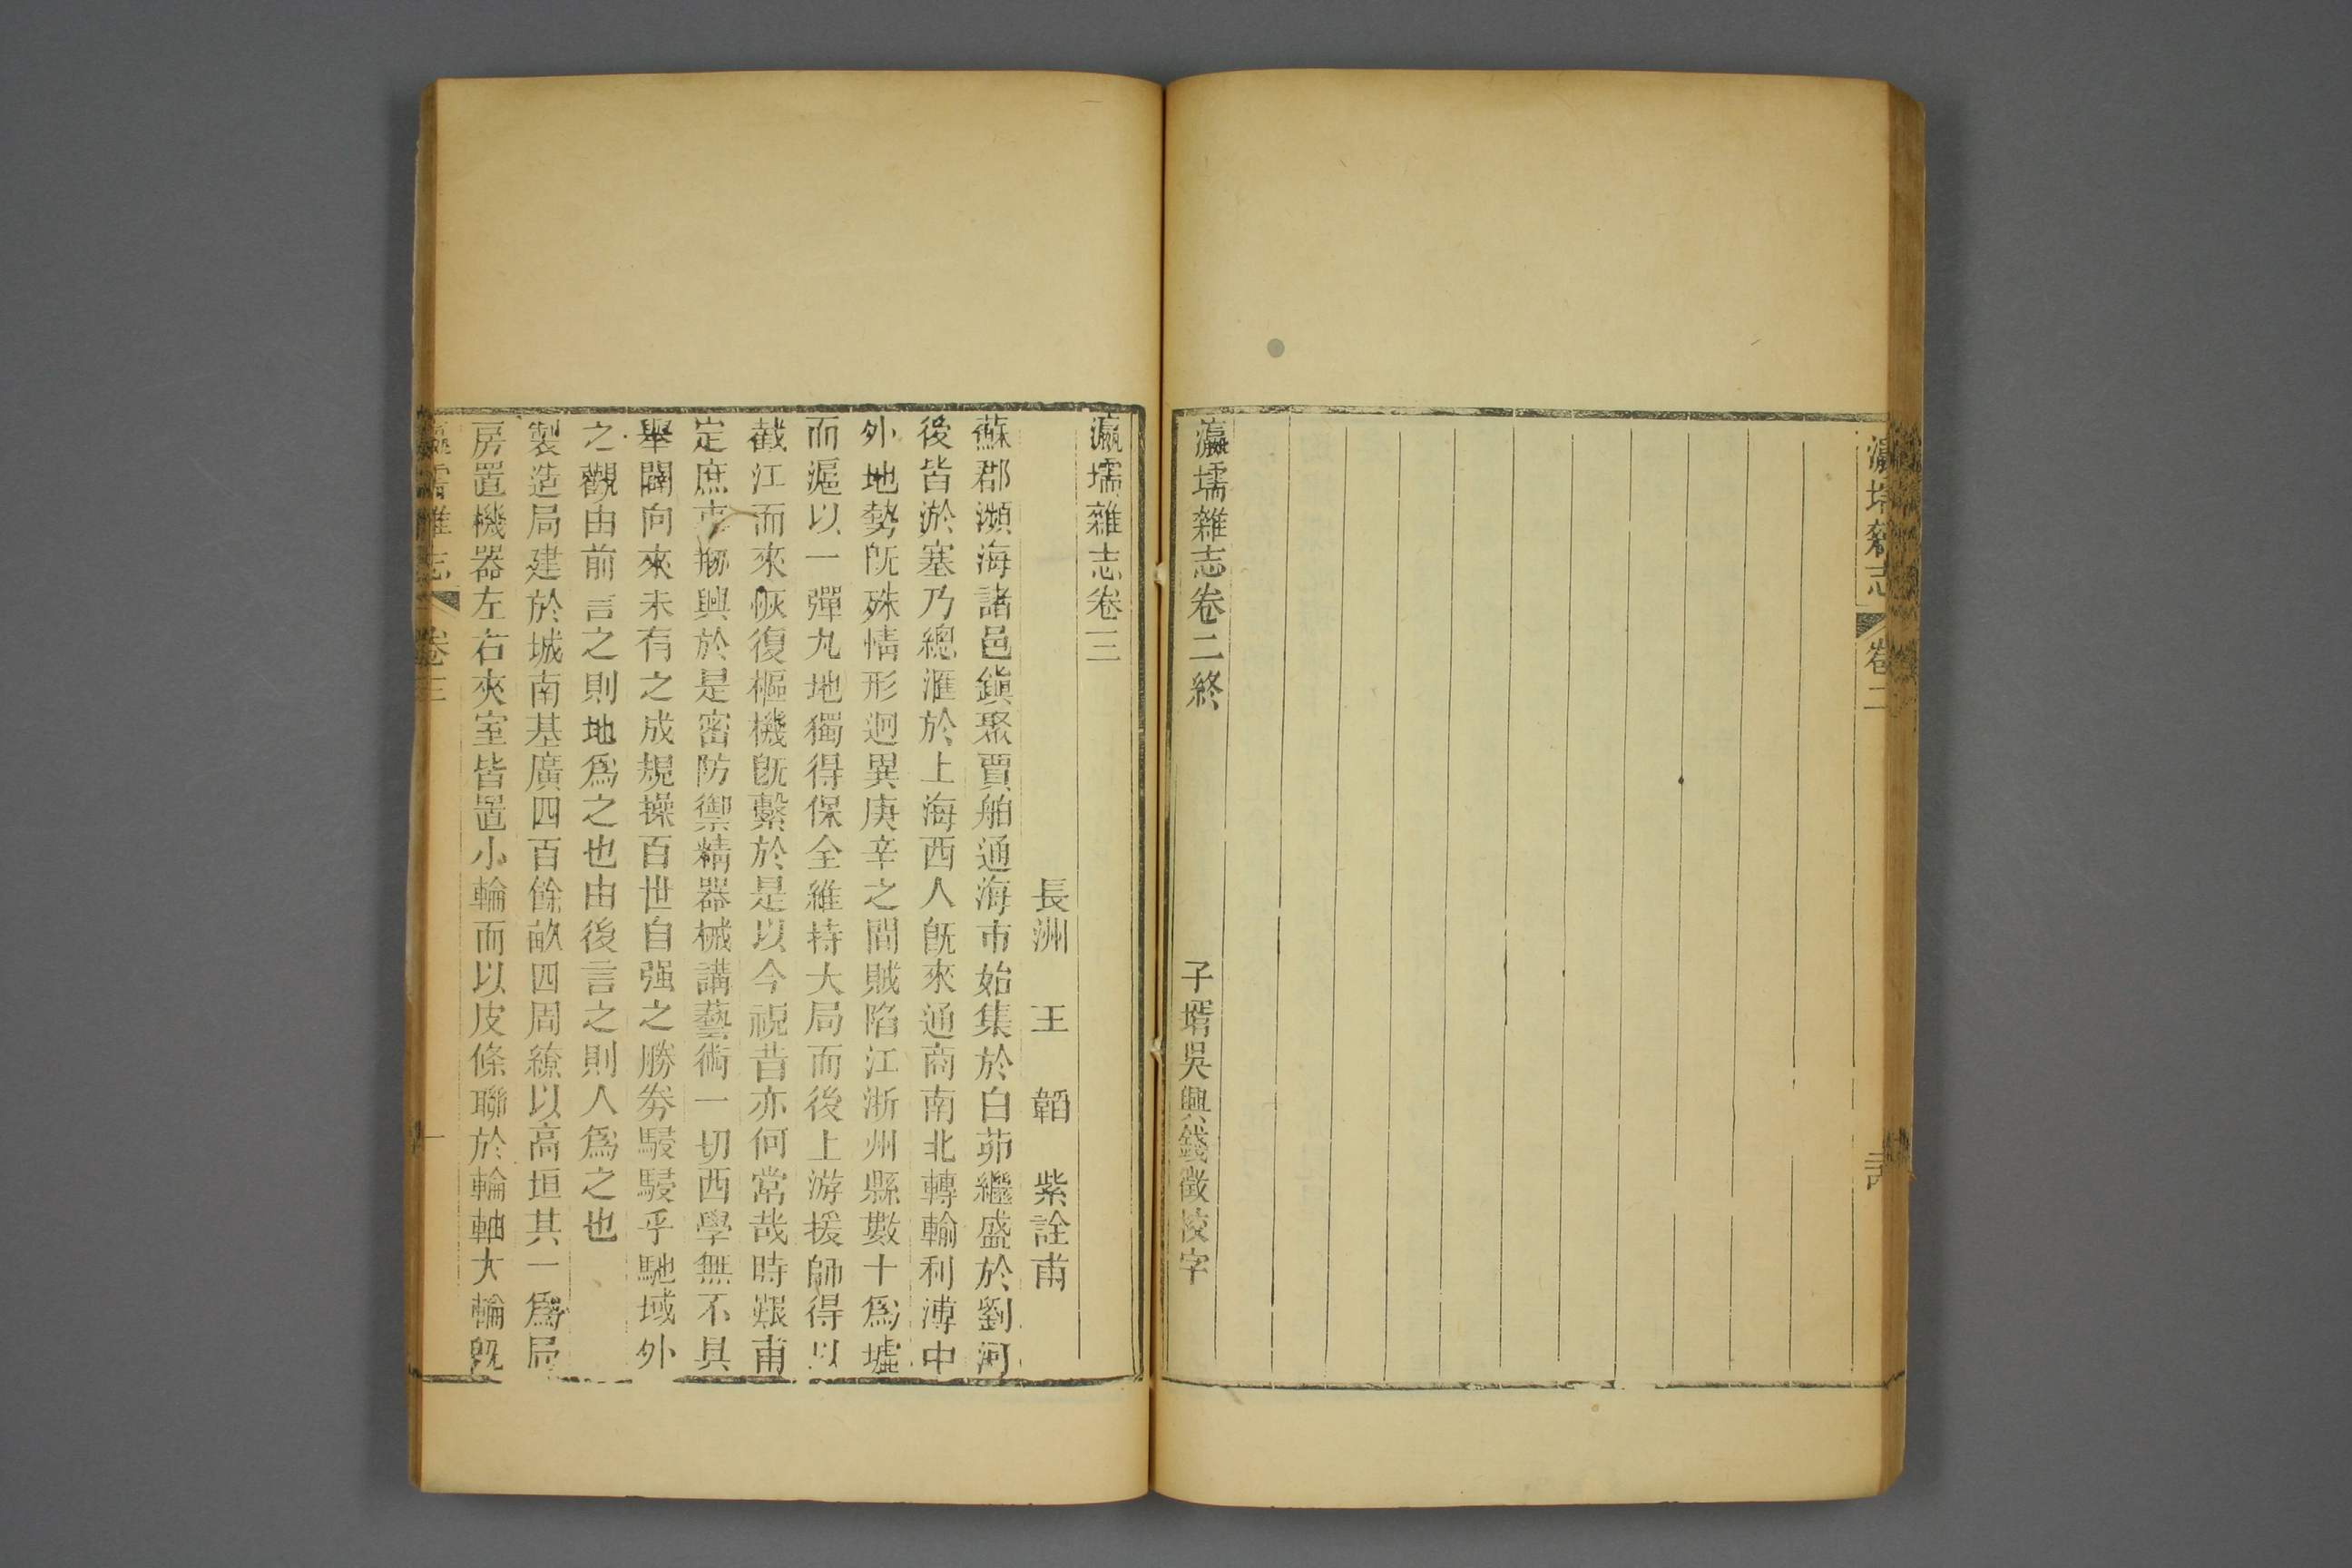 瀛壖雜志 卷二
瀛壖雜志卷二終 子壻吳興錢徵校字
瀛壖雜志卷三
長洲 王 韜 紫詮甫
蘇郡瀕海諸邑鎭聚賈舶通海市始集於白茆繼盛於劉河
後皆淤塞乃總滙於上海西人旣來通商南北轉輸利溥中
外地勢旣殊情形迥異庚辛之間賊陷江浙州縣數十爲墟
而滬以一彈丸地獨得保全維持大局而後上游援師得以
截江而來恢復樞機旣繫於是以今視昔亦何常哉時艱甫
定庶克稱興於是密防禦精器械講藝術一切西學無不具
舉闢向來未有之成規操百世自强之勝劵駸駸乎馳域外
之觀由前言之則地爲之也由後言之則人爲之也
製造局建於城南基廣四百餘畝四周繚以高垣其一爲局
房置機器左右夾室皆置小輪而以皮條聯於輪軸大輪旣
瀛壖雜志 卷三 一